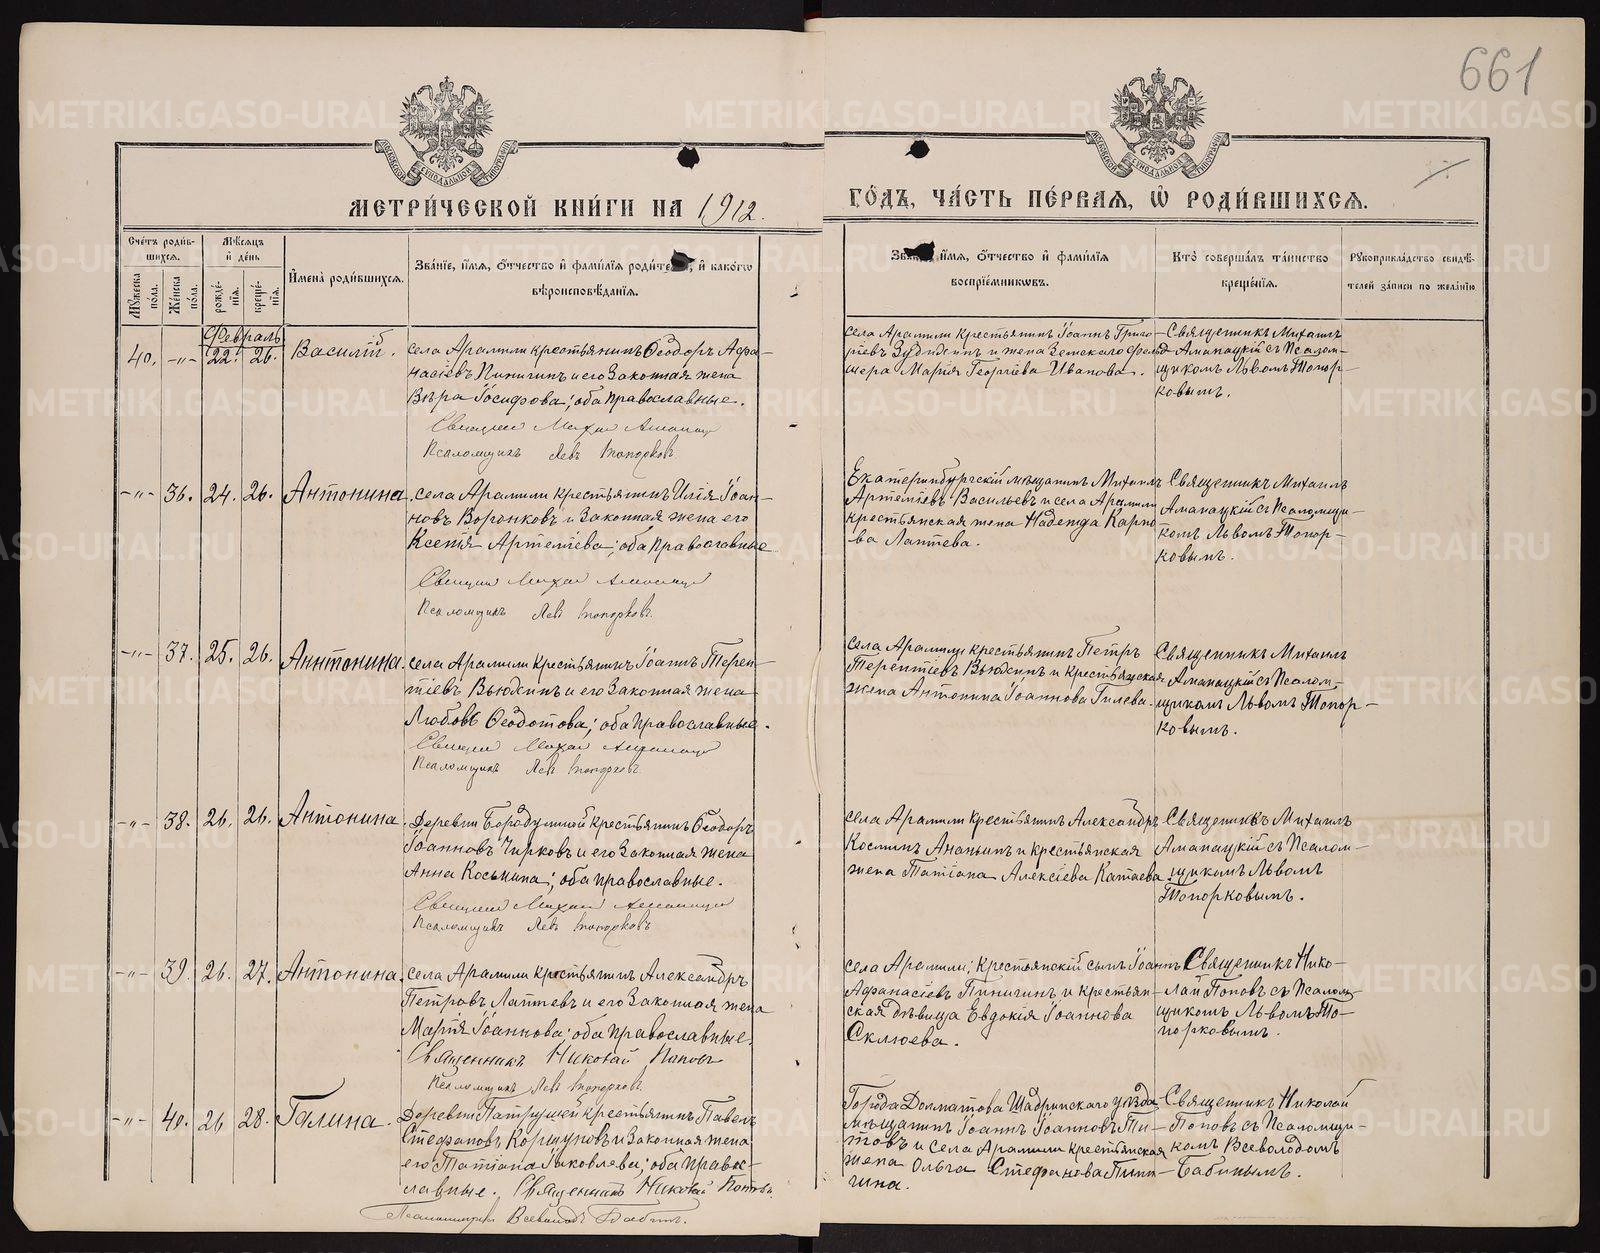 661
МЕТРИ́ЧЕСКОЙ КНИ́ГИ НА 1912.
ГО́ДЪ, ЧА́СТЬ ПЕ́РВАЯ, Ѡ҆ РОДИ́ВШИХСЯ.
Сче́тъ роди́в-
шихся.
Му́жеска по́ла.
Же́нска по́ла.
Мѣ́сяцъ и҆ де́нь
рожде́-
нїя.
креще́-
нїя.
И҆мена̀ роди́вшихся.
Зва́нїе, и҆́мя, ѻ҆́тчество и҆ фами́лїя роди́те , и҆ како́гѡ
вѣроисповѣ́данїя.
и҆́мя, ѻ҆́тчество и҆ фами́лїя
воспрїе́мниковъ.
Кто̀ соверша́лъ та́инство
креще́нїя.
Рꙋкоприкла́дство свидѣ́-
телей за́писи по жела́нїю
Февраль
40. -„- 22. 26. Василій.
села Арамили крестьянинъ Ѳеодоръ Афа-
насіевъ Пиничинъ и его законная жена
Вѣра Іосифова; оба православные.
Псаломщикъ Левъ Топорковъ
села Арамили крестьянинъ Іоаннъ Григо-
ріевъ и жена Земскаго фельд-
шера Марія Георгіева Иванова.
Священникъ Михаилъ
Аманацкій съ Псалом-
щикомъ Львомъ Топор-
ковымъ.
-„- 36. 24. 26. Антонина.
села Арамили крестьянинъ Илія Іоан-
новъ Воронковъ и законная жена его
Ксенія Артеміева; оба православные
Псаломщикъ Левъ Топорковъ.
Екатеринбургскій мѣщанинъ Михаилъ
Артеміевъ Васильевъ и села Арамили
крестьянская жена Надежда Карпо-
ва Лаптева.
Священникъ Михаилъ
Аманацкій съ Псаломщи-
комъ Львомъ Топор-
ковымъ.
-„- 37. 25. 26. Антонина.
села Арамили крестьянинъ Іоаннъ Терен-
тіевъ Вьюхинъ и его законная жена
Любовь Ѳеодотова; оба православные.
Псаломщикъ Левъ Топорковъ
села Арамили крестьянинъ Петръ
Терентіевъ Вьюхинъ и крестьянская
жена Антонина Іоаннова Гилева.
Священникъ Михаилъ
Аманацкій съ Псалом-
щикомъ Львомъ Топор-
ковымъ.
-„- 38. 26. 26. Антонина.
Деревни Бородулиной крестьянинъ Ѳеодоръ
Іоанновъ Чирковъ и его законная жена
Анна Косьмина; оба православные.
Псаломщикъ Левъ Топорковъ
села Арамили крестьянинъ Александръ
Косминъ Ананьинъ и крестьянская
жена Татіана Алексіева Катаева.
Священникъ Михаилъ
Аманацкій съ Псалом-
щикомъ Львомъ
Топорковымъ.
-„- 39. 26. 27. Антонина.
села Арамили крестьянинъ Александръ
Петровъ Лаптевъ и его законная жена
Марія Іоаннова; оба православные.
Священникъ Николай Поповъ
Псаломщикъ Левъ Топорковъ.
села Арамили; крестьянскій сынъ Іоаннъ
Афанасіевъ Пиничинъ и крестьян-
ская дѣвица Евдокія Іоаннова
Склюева.
Священникъ Нико-
лай Поповъ съ Псалом-
щикомъ Львомъ То-
порковымъ.
-„- 40. 26 28. Галина.
Деревни Патрушей крестьянинъ Павелъ
Стефановъ Коршуновъ и законная жена
его Татіана Іаковлева; оба право-
славные. Священникъ Николай Поповъ
Псаломщикъ Всеволодъ Бабинъ.
Города Долматова Шадринскаго уѣзда
мѣщанинъ Іоаннъ Іоанновъ Ти-
товъ и села Арамили крестьянская
жена Ольга Стефанова Пини-
чина.
Священникъ Николай
Поповъ съ Псаломщи-
комъ Всеволодомъ
Бабинымъ.
METRIKI.GASO-URAL.RU